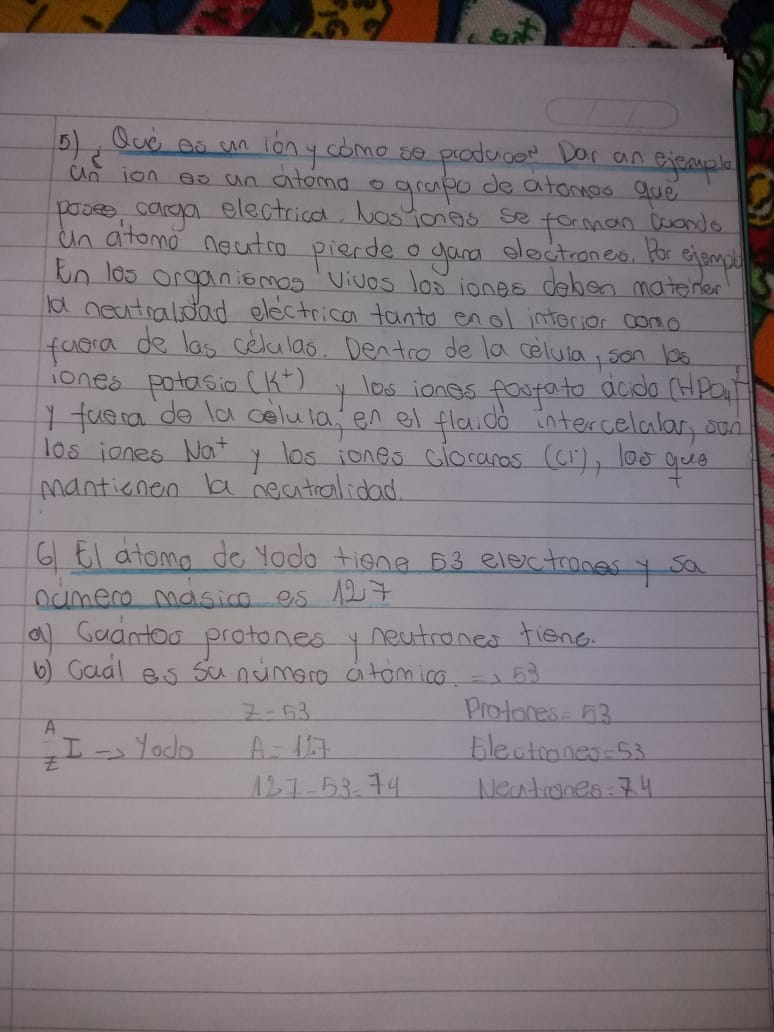 5) ¿Qué es un ión y cómo se produce? Dar un ejemplo
un ion es un átomo o grupo de átomos que
posee carga electrica. Los iones se forman cuando
un átomo neutro pierde o gana electrones. Por ejemplo
En los organismos vivos los iones deben matener
la neutralidad eléctrica tanto en el interior como
fuera de las células. Dentro de la célula, son los
iones potasio (K⁺) y los iones fosfato ácido (HPO₄)⁼
y fuera de la celula, en el fluido intercelular, son
los iones Na⁺ y los iones cloruros (Cl⁻), los que
mantienen la neutralidad.
6) El átomo de Yodo tiene 53 electrones y su
número másico es 127
a) Cuántos protones y neutrones tiene.
b) Cuál es su número atómico. => 53
Z = 53 Protones = 53
A
Z I -> Yodo A = 127 Electrones = 53
127 - 53 = 74 Neutrones = 74